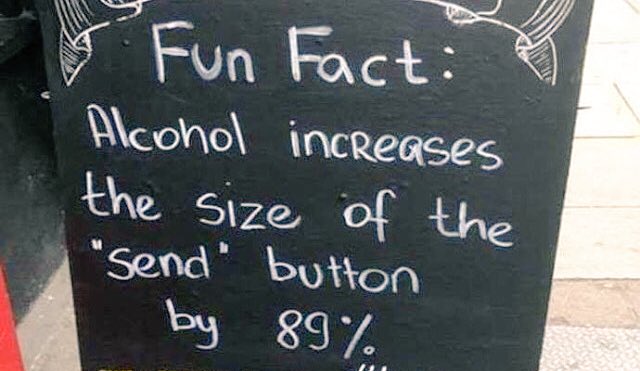 Fun Fact:
Alcohol increases
the size of the
"send" button
by 89%